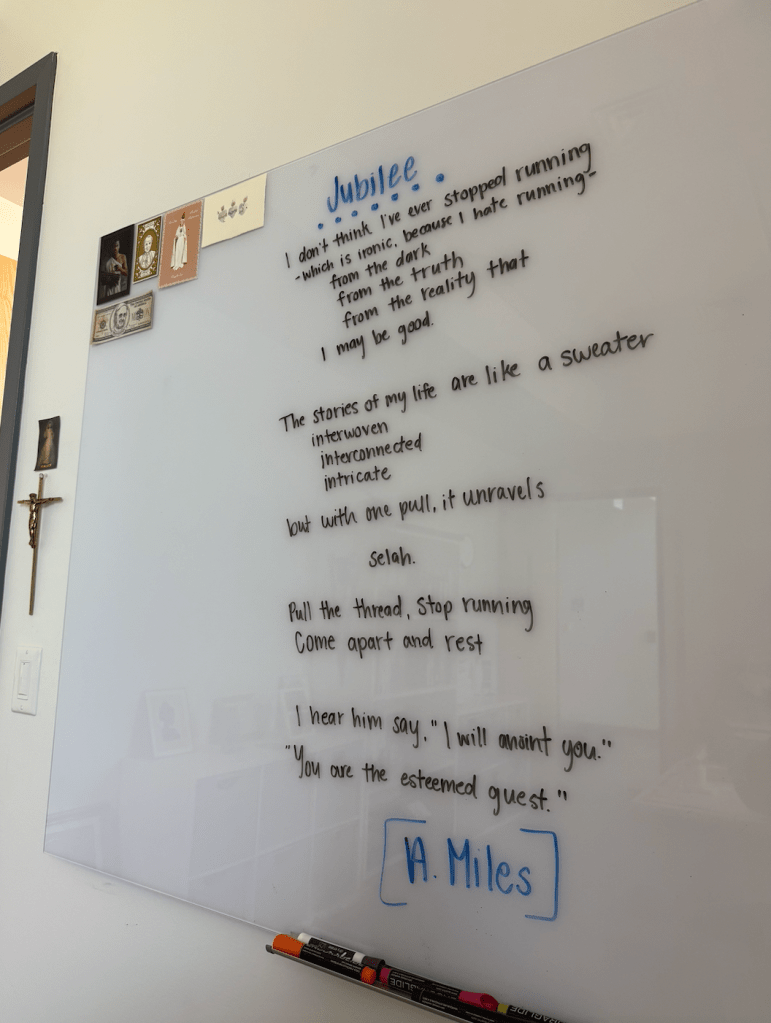 Jubilee
I don't think I've ever stopped running
-which is ironic, because I hate running-
from the dark
from the truth
from the reality that
I may be good.
The stories of my life are like a sweater
interwoven
interconnected
intricate
but with one pull, it unravels
selah.
Pull the thread, stop running
Come apart and rest
I hear him say, "I will anoint you."
"You are the esteemed guest."
[A. Miles]